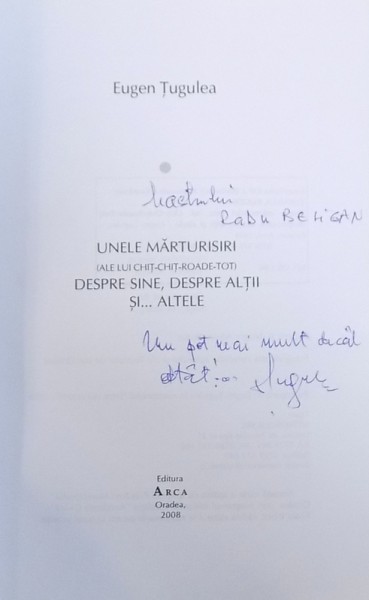 Eugen Țugulea
Maestrului
RADU BELIGAN
UNELE MĂRTURISIRI
(ALE LUI CHIȚ-CHIȚ-ROADE-TOT)
DESPRE SINE, DESPRE ALȚII
ȘI... ALTELE
Nu pot mai mult decât
atât!...
Editura
ARCA
Oradea,
2008